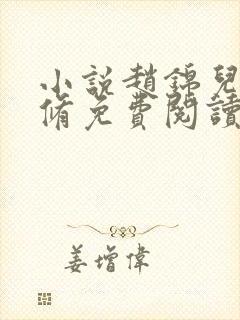 小說趙錦兒
脩免費閱讀
姜增偉